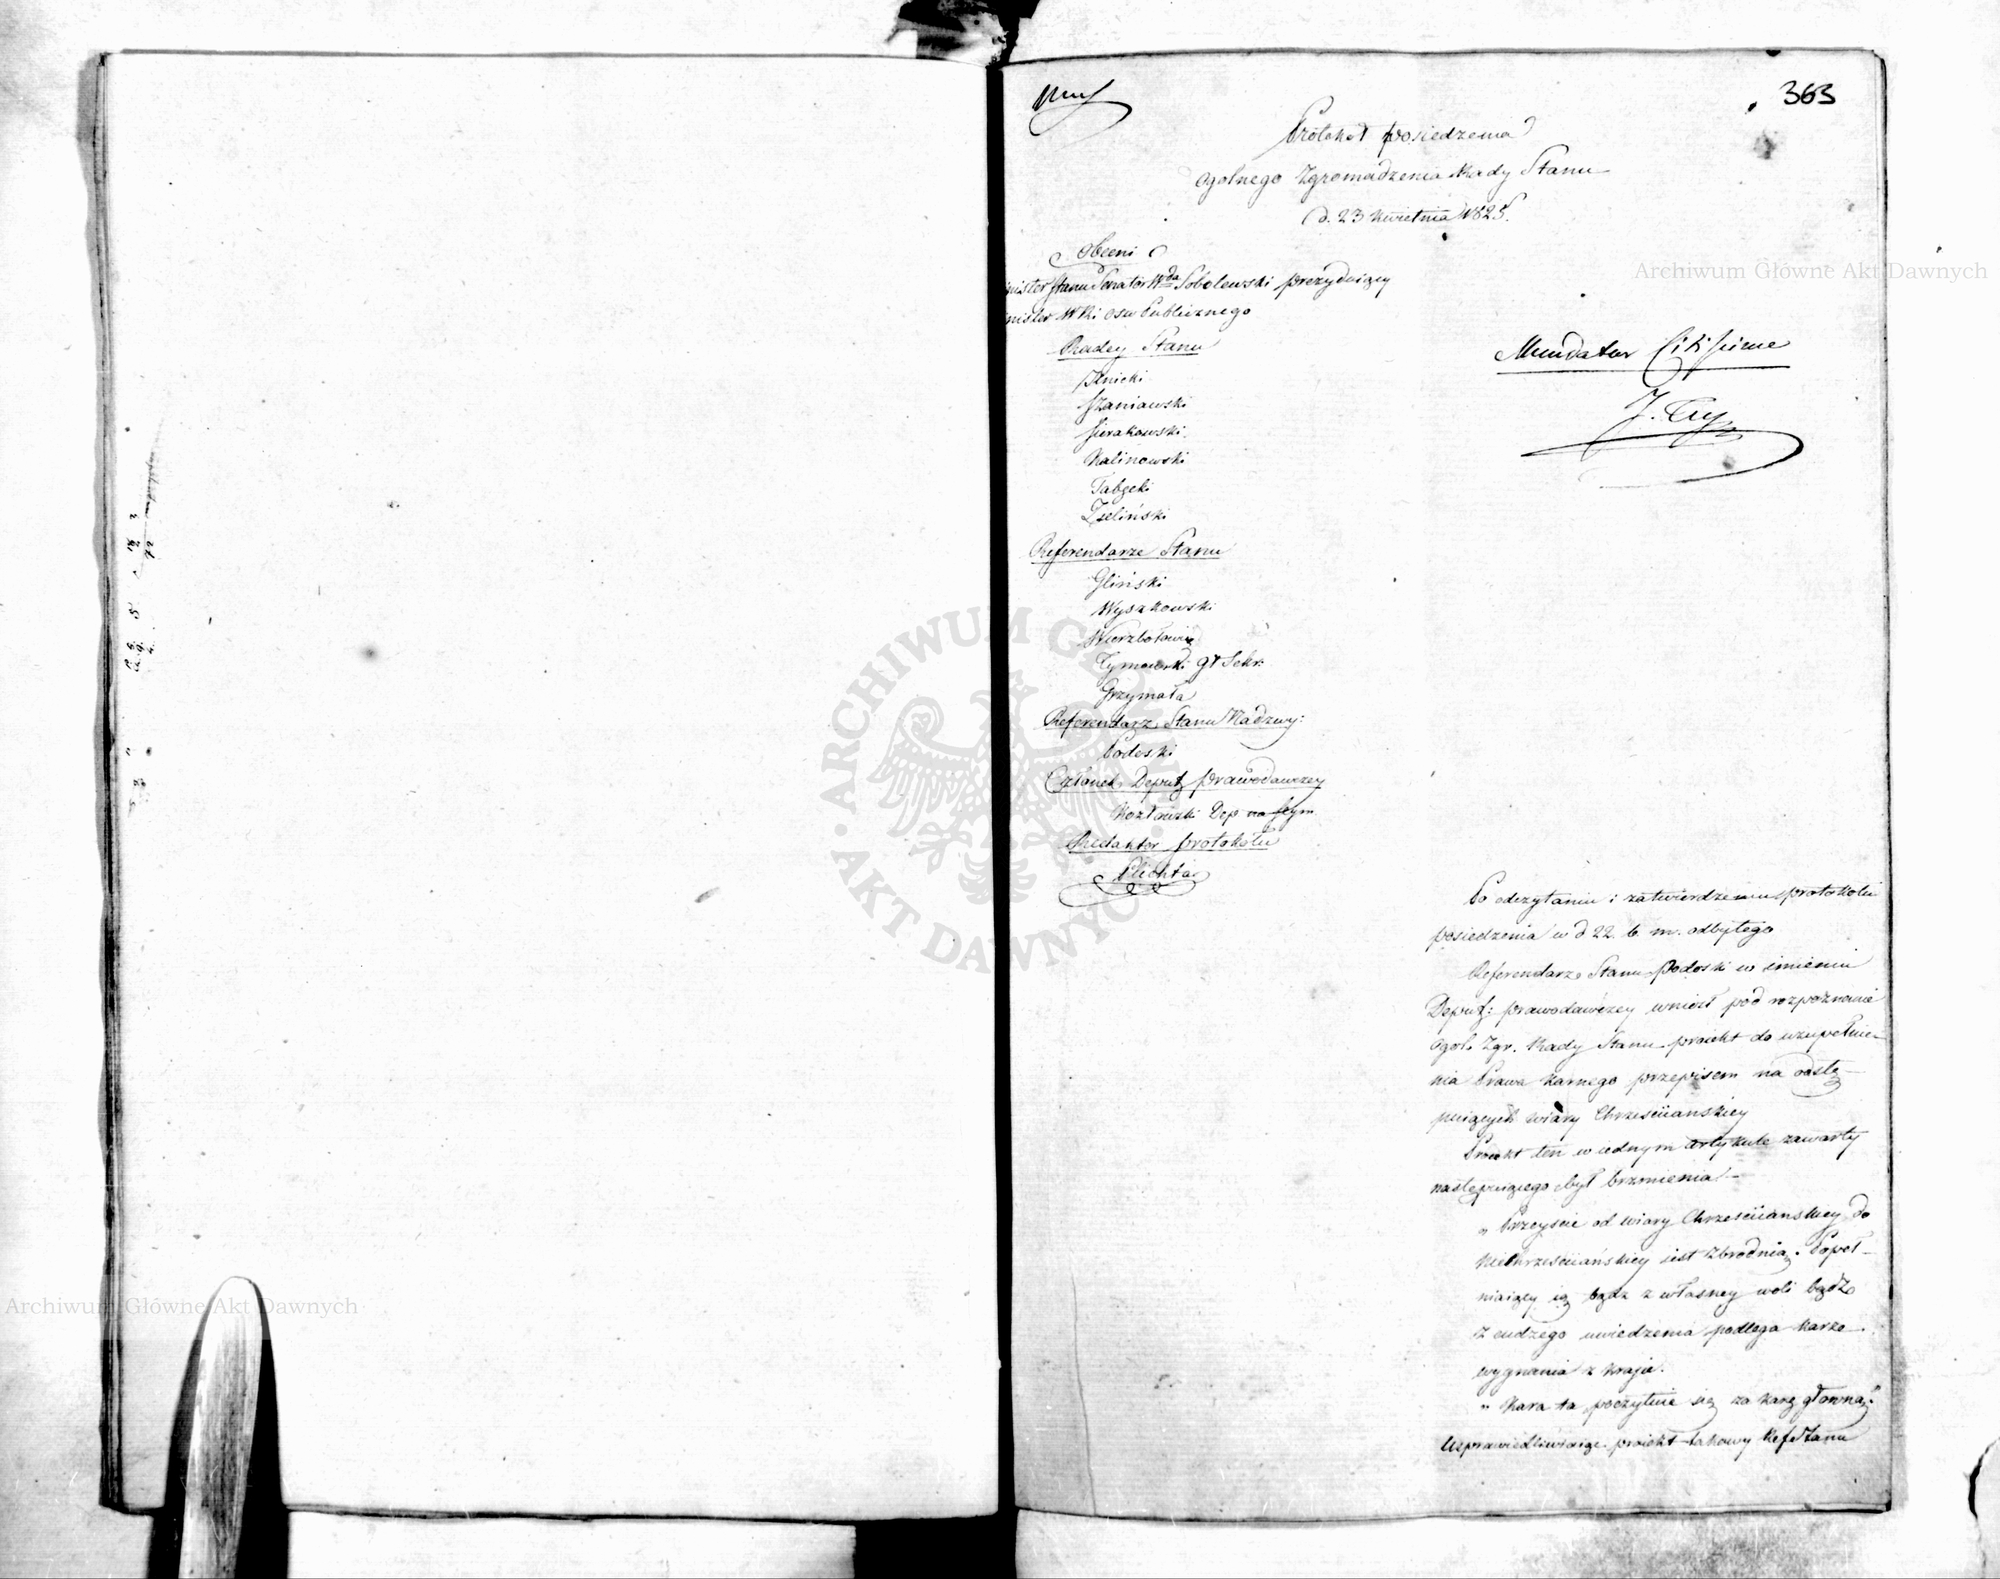 363
Protokół posiedzenia
ogolnego Zgromadzenia Rady Stanu
d. 23 kwietnia 1825.
Obecni
Minister Stanu Senator Wda Sobolewski prezyduiący
Minister osw Publicznego
Radcy Stanu
Szaniawski
Sierakowski
Kalinowski
Tabęcki
Zieliński
Referendarze Stanu
Gliński
Wyszkowski
Tymowski gł Sekr:
Grzymała
Referendarz Stanu Nadzwy:
Podoski
Członek Deput prawodawczey
Dep na Seym
Redaktor protokołu
Plichta
Mundatur Citissime
Po odczytaniu i zatwierdzeniu protokołu
posiedzenia w d 22. b. m. odbytego
Referendarz Stanu Podoski w imieniu
Deput: prawodawczey wniosł pod rozpoznanie
Ogol. Zgr. Rady Stanu proiekt do uzupełnie-
nia Prawa karnego przepisem na odstę-
puiących wiary Chrześciianskiey
Proiekt ten w iednym artykule zawarty
następuiącego był brzmienia -
„ Przeyscie od wiary Chrześciianskiey do
niechrześciiańskiey iest zbrodnią. Popeł-
niaiący ią bądz z własney woli bądz
z cudzego uwiedzenia podlega karze
wygnania z kraju.
„ Kara ta poczytuie się za karę głowną."
Usprawiedliwiaiąc proiekt takowy Ref Stanu
Archiwum Główne Akt Dawnych
Archiwum Główne Akt Dawnych
ARCHIWUM GŁÓWNE AKT DAWNYCH